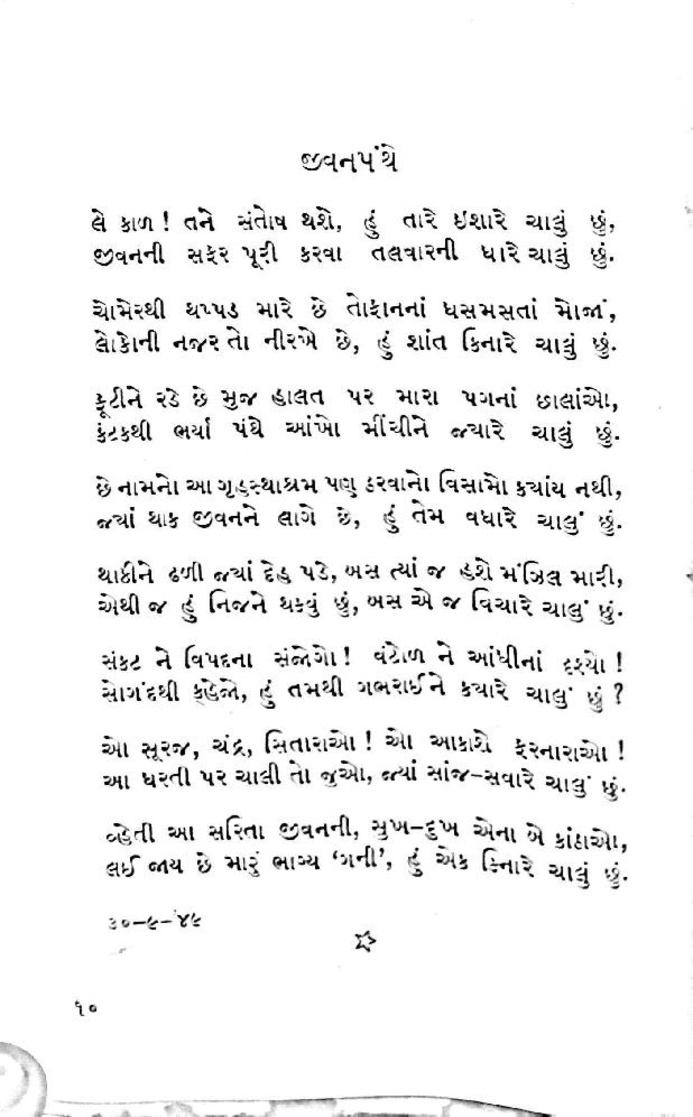 જીવનપંથે
લે કાળ ! તને સંતોષ થશે, હું તારે ઇશારે ચાલું છું,
જીવનની સફર પૂરી કરવા તલવારની ધારે ચાલું છું.
ચોમેરથી થપ્પડ મારે છે તોફાનનાં ધસમસતાં મોજાં,
લોકોની નજર તો નીરખે છે, હું શાંત કિનારે ચાલું છું.
ફૂટીને રડે છે મુજ હાલત પર મારા પગનાં છાલાંઓ,
કંટકથી ભર્યા પંથે આંખો મીંચીને જ્યારે ચાલું છું.
છે નામનો આ ગૃહસ્થાશ્રમ પણ ઠરવાનો વિસામો ક્યાંય નથી,
જ્યાં થાક જીવનને લાગે છે, હું તેમ વધારે ચાલું છું.
થાકીને ઢળી જ્યાં દેહ પડે, બસ ત્યાં જ હશે મંઝિલ મારી,
એથી જ હું નિજને થકવું છું, બસ એ જ વિચારે ચાલું છું.
સંકટ ને વિપદના સંજોગો ! વંટોળ ને આંધીનાં દૃશ્યો !
સોગંદથી કહેજો, હું તમથી ગભરાઈને ક્યારે ચાલું છું ?
ઓ સૂરજ, ચંદ્ર, સિતારાઓ ! ઓ આકાશે ફરનારાઓ !
આ ધરતી પર ચાલી તો જુઓ, જ્યાં સાંજ-સવારે ચાલું છું.
વ્હેતી આ સરિતા જીવનની, સુખ-દુખ એના બે કાંઠાઓ,
લઈ જાય છે મારું ભાગ્ય ‘ગની’, હું એક કિનારે ચાલું છું.
૩૦-૯-’૪૯
૧૦